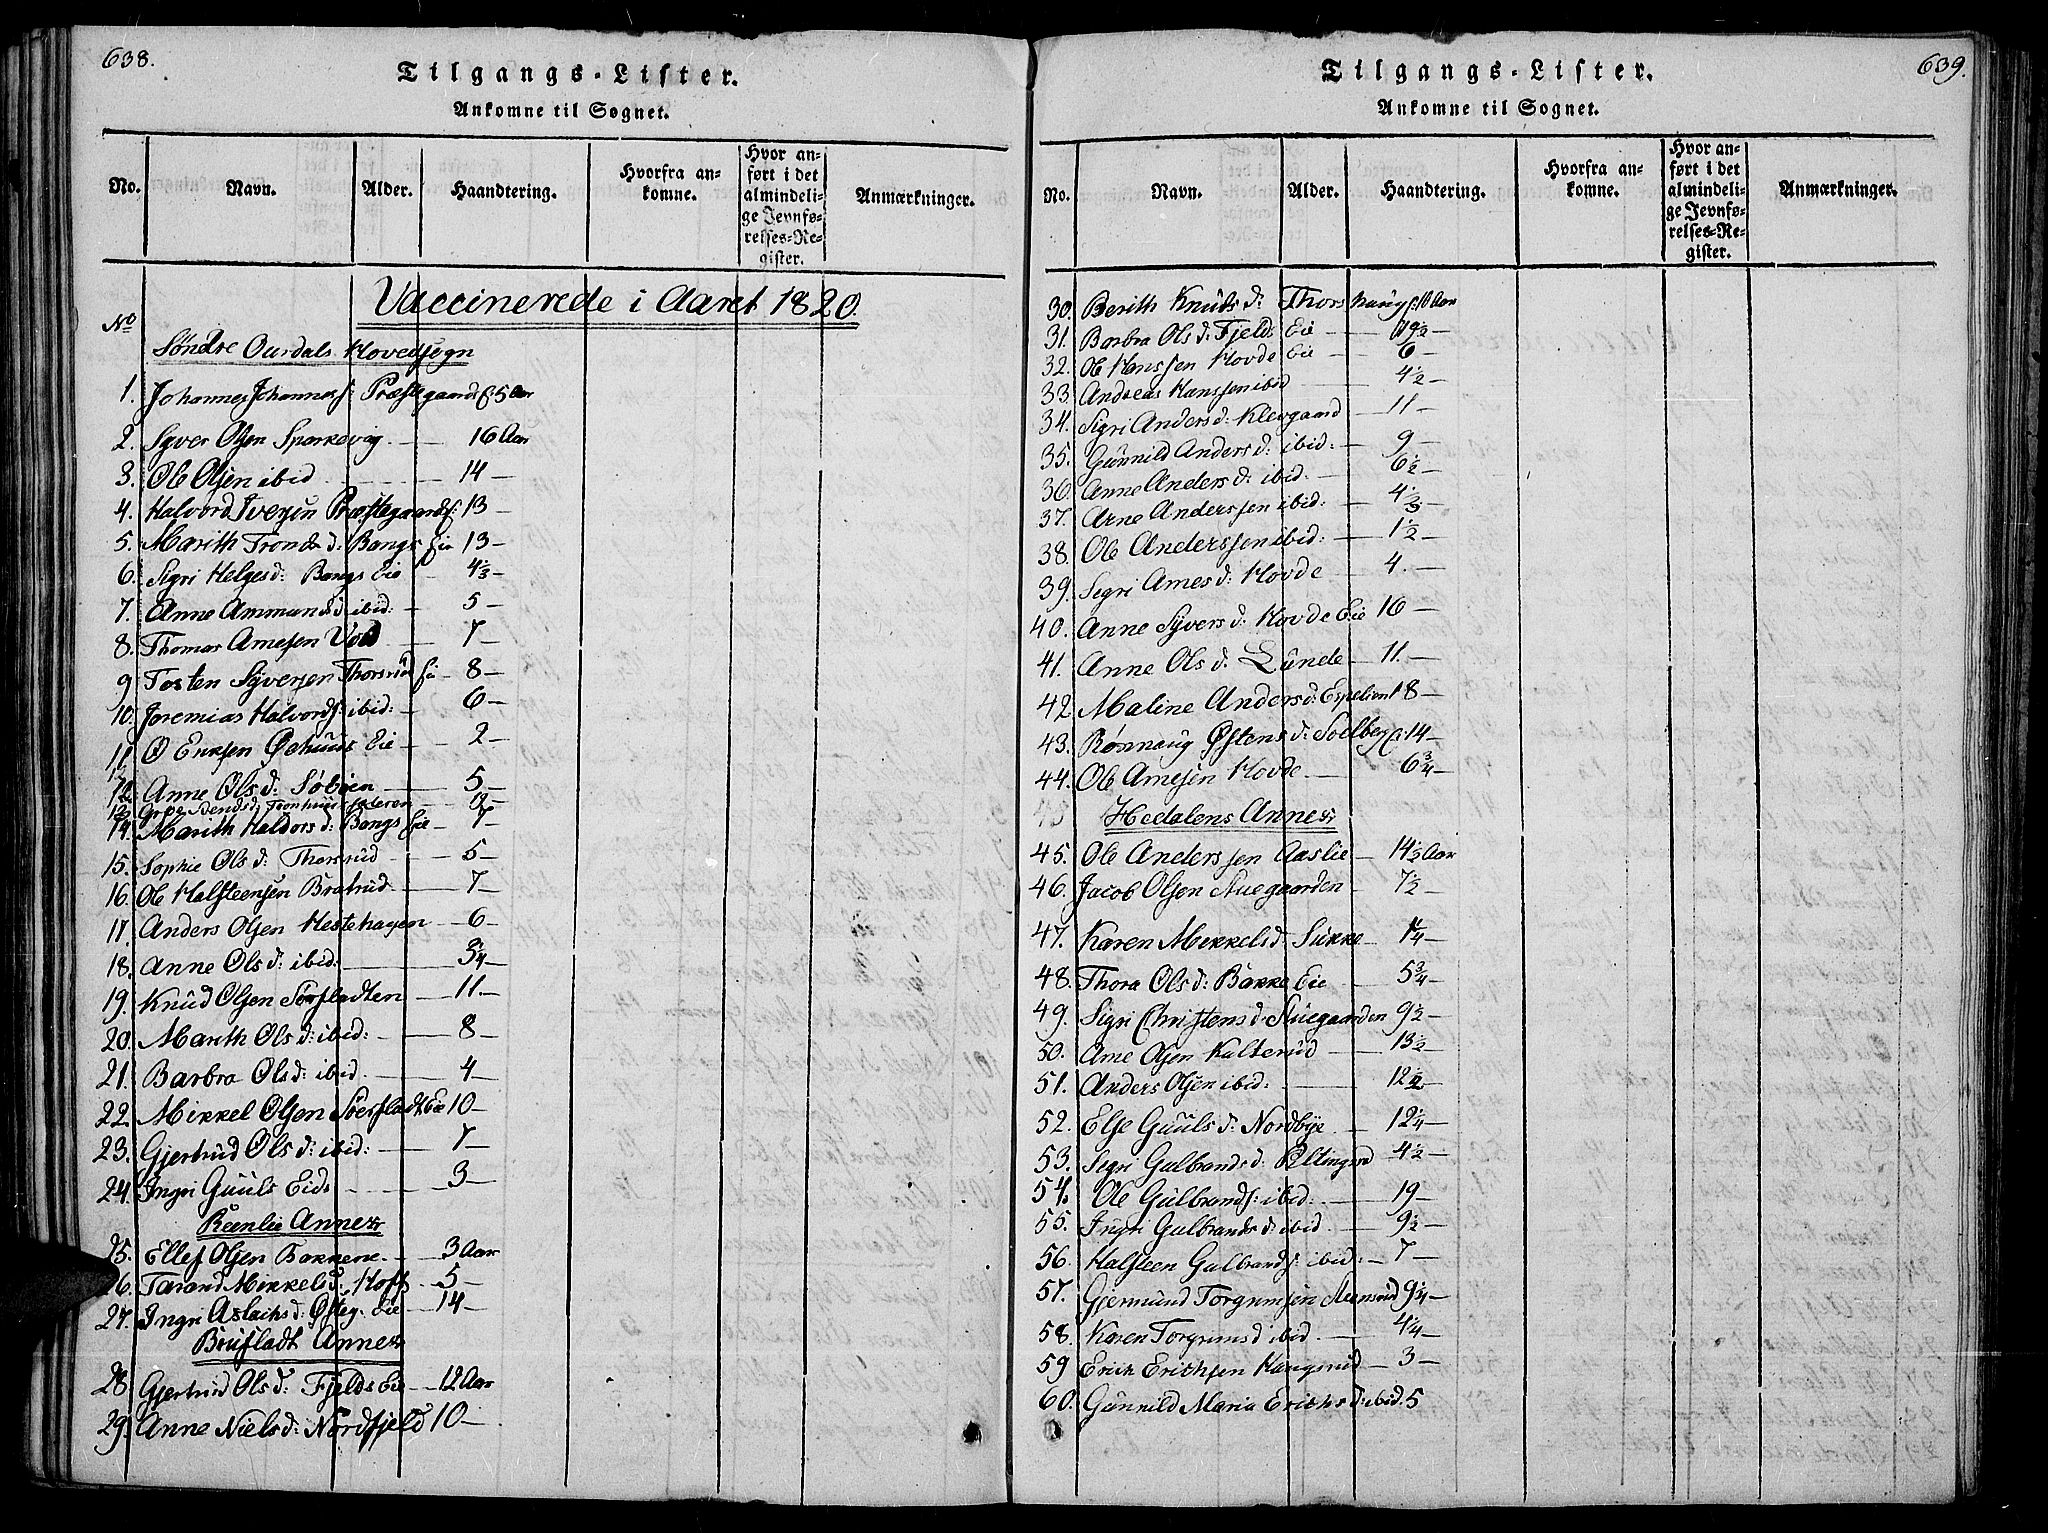 638.
Tilgangs-Lister.
Ankomne til Sognet.
No.
Navn.
Alder.
Haandtering.
Hvorfra an-
komne.
Hvor an-
ført i det
almindeli-
ge Jevnfø-
relses-Re-
gister.
Anmærkninger.
Vaccinerede i Aaret 1820.
No
Søndre Ourdals Hovedsogn
1. Johannes Johanness: Præstegaards E: 5 Aar
2. Syver Olsen Sparkevig. 16 Aar
3. Ole Olsen ibid 14 —
4. Halvord Iversen Præstegaards: 13 —
5. Marith Tronds d: Bangs Eie 13 —
6. Sigri Helges d: Bangs Eie 4 1/3 —
7. Anne Ammunds d ibid: — 5 —
8. Thomas Arnesen Vold — 7 —
9 Tosten Syversen Thorsrud Ei — 8 —
10. Jeremias Halvords: ibid: — 6 —
11 O Eriksen Eie — 2 —
12. Anne Ols d: Søbøen — 5 —
13.
14. Marith Haldors d: Bangs Eie — 7 —
15. Sophie Ols d: Thorsrud — 5 —
16. Ole Halsteensen Bratrud — 7 —
17. Anders Olsen Hestehagen — 6 —
18. Anne Ols d: ibid: — 3 1/4 —
19. Knud Olsen Sørfladten — 11 —
20. Marith Ols d: ibid: — 8 —
21. Barbra Ols d: ibid. — 4 —
22. Mikkel Olsen Søerfladt Eie 10 —
23. Gjertrud Ols d: ibid: — 7 —
24. Ingri Guuls Eids — 3 —
Reenlie Annex
25. Ellef Olsen Bakkene. — 3 Aar
26. Tarand Mikkelsd: Hoff. 5 —
27. Ingri Aslachs d: Østeg. Eie — 14 —
Brufladt Annex
28. Gjertrud Ols d: Fjelds Eie — 12 Aar
29. Anne Niels d: Nordfjeld 10 —
639.
Tilgangs-Lister.
Ankomne til Sognet.
No.
Navn.
Alder.
Haandtering.
Hvorfra an-
komne.
Hvor an-
ført i det
almindeli-
ge Jevnfø-
relses-Re-
gister.
Anmærkninger.
30. Berith Knuds d: 10 Aar
31. Barbra Ols d: Fjelds Eie —
32. Ole Hanssen Hovde Eie 6 —
33. Andreas Hanssen ibid — 4 1/2 —
34. Sigri Anders d: Klevgaard — 11 —
35. Gunnild Anders d: ibid: — 9 —
36. Anne Anders d: ibid. — 6 1/2 —
37. Arne Anderssen ibid: — 4 2/3 —
38. Ole Anderssen ibid: — 1 1/2 —
39. Segri Arnes d: Hovde — 4. —
40. Anne Syvers d: Hovde Eie 16 —
41. Anne Ols d: Lunde — 11. —
42. Maline Anders d: Espelien 18 —
43. Rønnaug Østens d: Soelberg: 14 —
44. Ole Arnesen Hovde. — 6 3/4 —
Hedalens Annex
45. Ole Anderssen Aaslie — 14 1/2 Aar
46. Jacob Olsen Stuegaarden — 7 1/2 —
47. Karen Mikkelsd: Sukke — 1/4 —
48. Thora Ols d: Bakke Eie — 5 3/4 —
49. Sigri Christens d: Stuegaarden 9 1/2 —
50. Arne Olsen Kalterud — 13 1/2 —
51. Anders Olsen ibid: — 12 1/2 —
52. Else Guuls d: Nordbye. — 12 1/4 —
53. Segri Gulbrands d: Peltingrud 4 1/2 —
54. Ole Gulbrands: ibid: — 19 —
55. Ingri Gulbrands d: ibid. — 9 1/2 —
56. Halsteen Gulbrands: ibid: — 7 —
57. Gjermund Torgrimsen 9 1/4 —
58. Karen Torgrims d ibid. — 4 1/4 —
59 Erich Erichsen Haugsrud — 3 —
60. Gunnild Maria Erichs d: ibid. 5